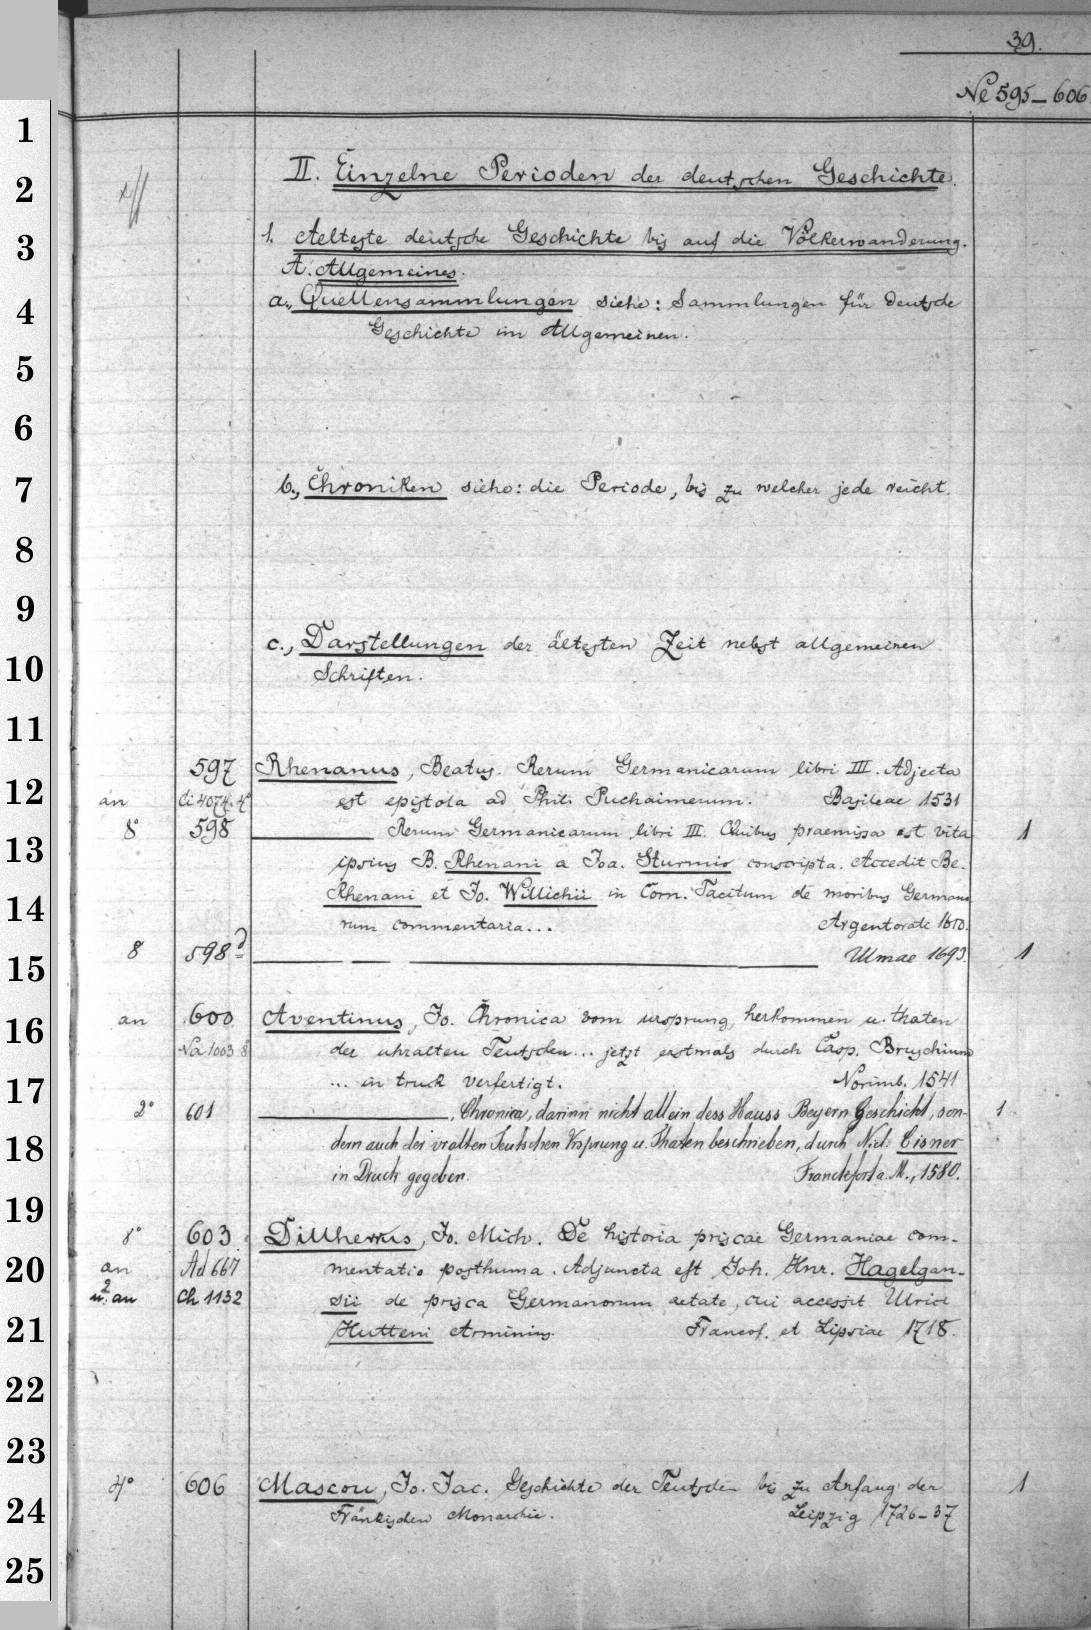 39.
Ne 595–606
II. Einzelne Perioden der deutschen Geschichte.
1. Aelteste deutsche Geschichte bis auf die Völkerwanderung.
A. Allgemeines.
a., Quellensammlungen siehe: Sammlungen für deutsche
Geschichte im Allgemeinen.
b., Chroniken siehe: die Periode, bis zu welcher jede reicht.
c., Darstellungen der ältesten Zeit nebst allgemeinen
Schriften.
597 Rhenanus, Beatus. Rerum Germanicarum libri III. Adjecta
an Ci 4074. 4° est epistola ad Phil. Puchaimerum. Basileae 1531
8° 598 Rerum Germanicarum libri III. Quibus praemissa est vita 1
ipsius B. Rhenani a Joa. Sturmio conscripta. Accedit Be.
Rhenani et Jo. Willichii in Corn. Tacitum de moribus Germano
rum commentaria... Argentorate 1610.
8 598 Ulmae 1693. 1
an 600 Aventinus, Jo. Chronica vom ursprung, herkommen u. thaten
Na 1003 8 der uhralten Teutschen... jetzt erstmals durch Casp. Bruschium
... in truck verfertigt. Norimb. 1541
2° 601 , Chronica, darinn nicht allein dess Hauss Beyern Geschicht, son- 1
dern auch der vralten Teutschen Vrsprung u. Thaten beschrieben, durch Nicl. Cisner
in Druck gegeben. Franckfort a. M., 1580.
8° 603 Dillherrus, Jo. Mich. De historia priscae Germaniae com-
an Ad 667 mentatio posthuma. Adjuncta est Joh. Hnr. Hagelgan-
2 u. an Ch 1132 sii de prisca Germanorum aetate, cui accessit Ulrici
Hutteni Arminius. Francof. et Lipsiae 1718.
4° 606 Mascou, Jo. Jac. Geschichte der Teutschen bis zu Anfang der 1
Fränkischen Monarchie. Leipzig 1726–37
1
2
3
4
5
6
7
8
9
10
11
12
13
14
15
16
17
18
19
20
21
22
23
24
25